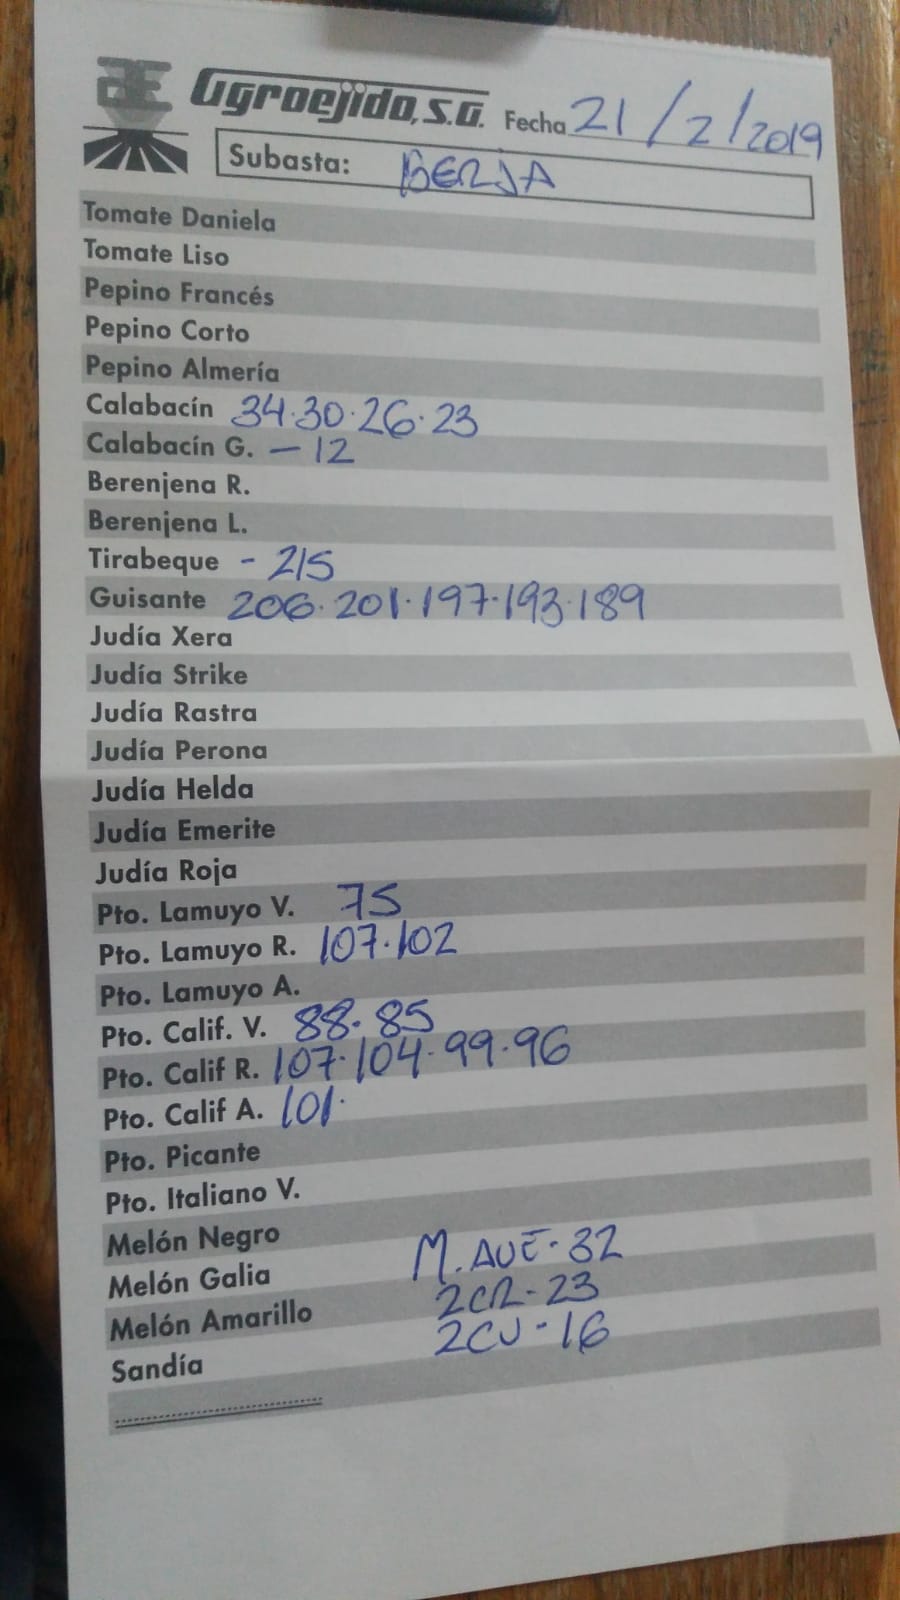 AE Agroejido, S.A. Fecha 21/2/2019
Subasta: BERJA
Tomate Daniela
Tomate Liso
Pepino Francés
Pepino Corto
Pepino Almería
Calabacín 34.30.26.23
Calabacín G. - 12
Berenjena R.
Berenjena L.
Tirabeque - 215
Guisante 206.201.197.193.189
Judía Xera
Judía Strike
Judía Rastra
Judía Perona
Judía Helda
Judía Emerite
Judía Roja
Pto. Lamuyo V. 75
Pto. Lamuyo R. 107.102
Pto. Lamuyo A.
Pto. Calif. V. 88.85
Pto. Calif R. 107.104.99.96
Pto. Calif A. 101.
Pto. Picante
Pto. Italiano V.
Melón Negro
Melón Galia M. AUE - 32
Melón Amarillo 2CR - 23
Sandía 2CU - 16